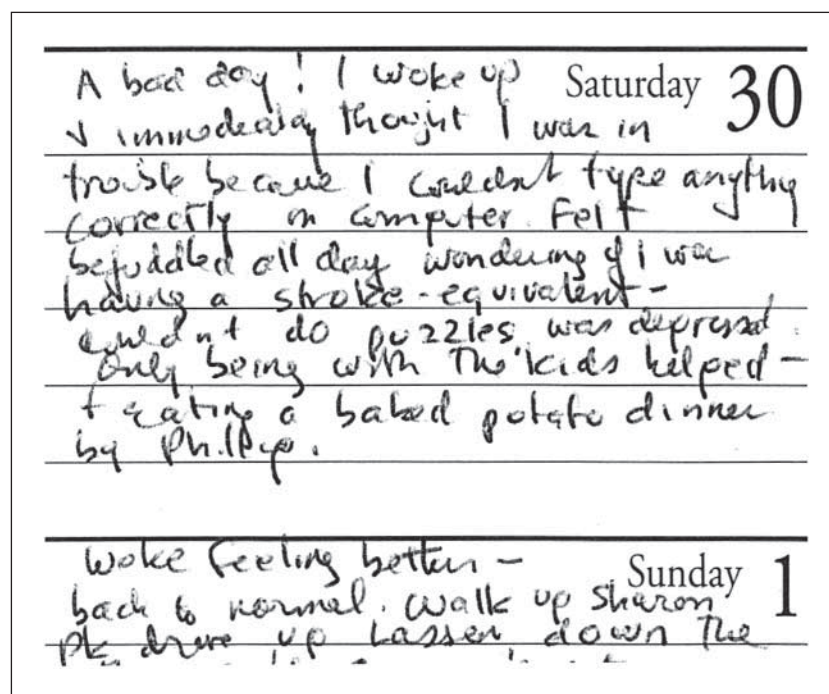 A bad day! I woke up Saturday 30
+ immediately thought I was in
trouble because I couldn't type anything
correctly on computer. Felt
befuddled all day wondering if I was
having a stroke-equivalent -
couldn't do puzzles, was depressed.
Only being with the kids helped -
+ eating a baked potato dinner
by Phillip.
Woke feeling better - Sunday 1
back to normal. Walk up Sharon
Pk drive, up Lassen, down the